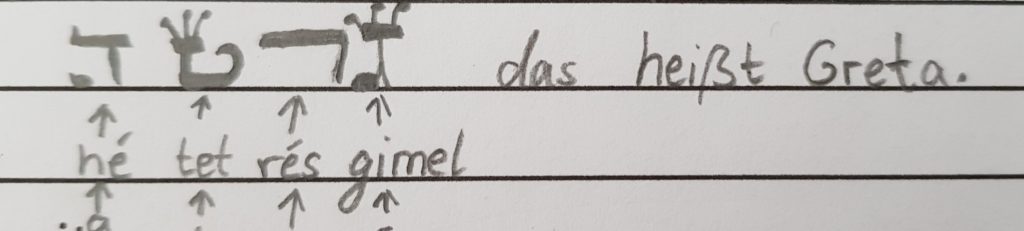 גרטה das heißt Greta.
hé tet rés gimel